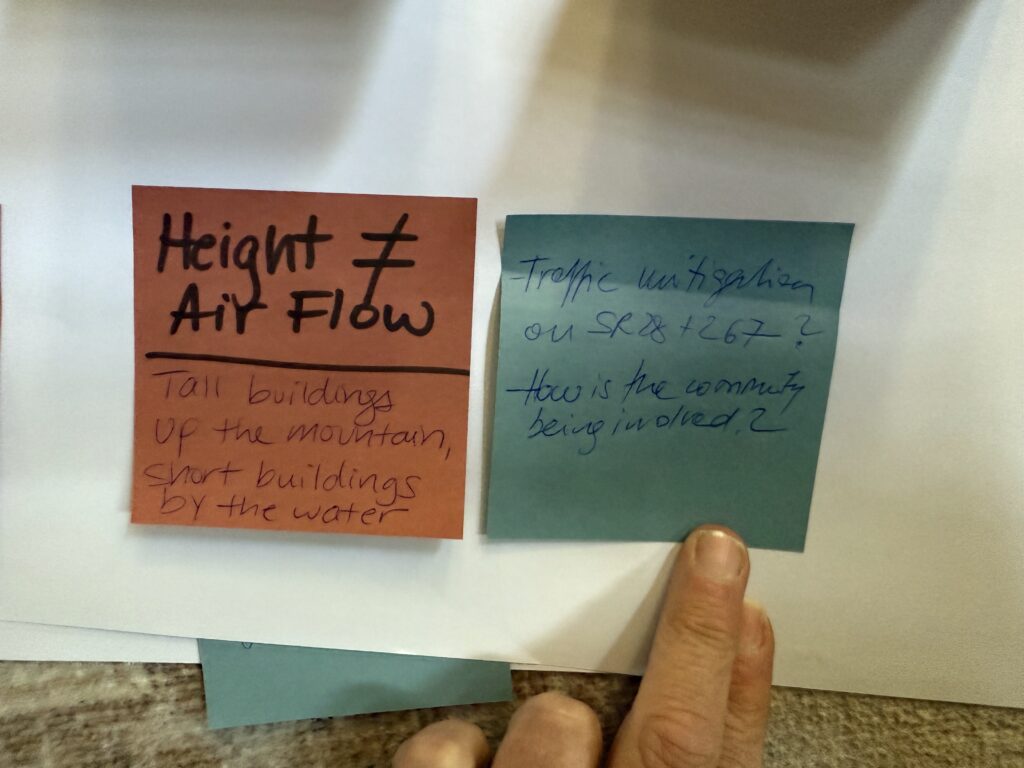 Height ≠
Air Flow
Tall buildings
up the mountain,
short buildings
by the water
Traffic mitigation
on SR28 + 267?
How is the community
being involved?